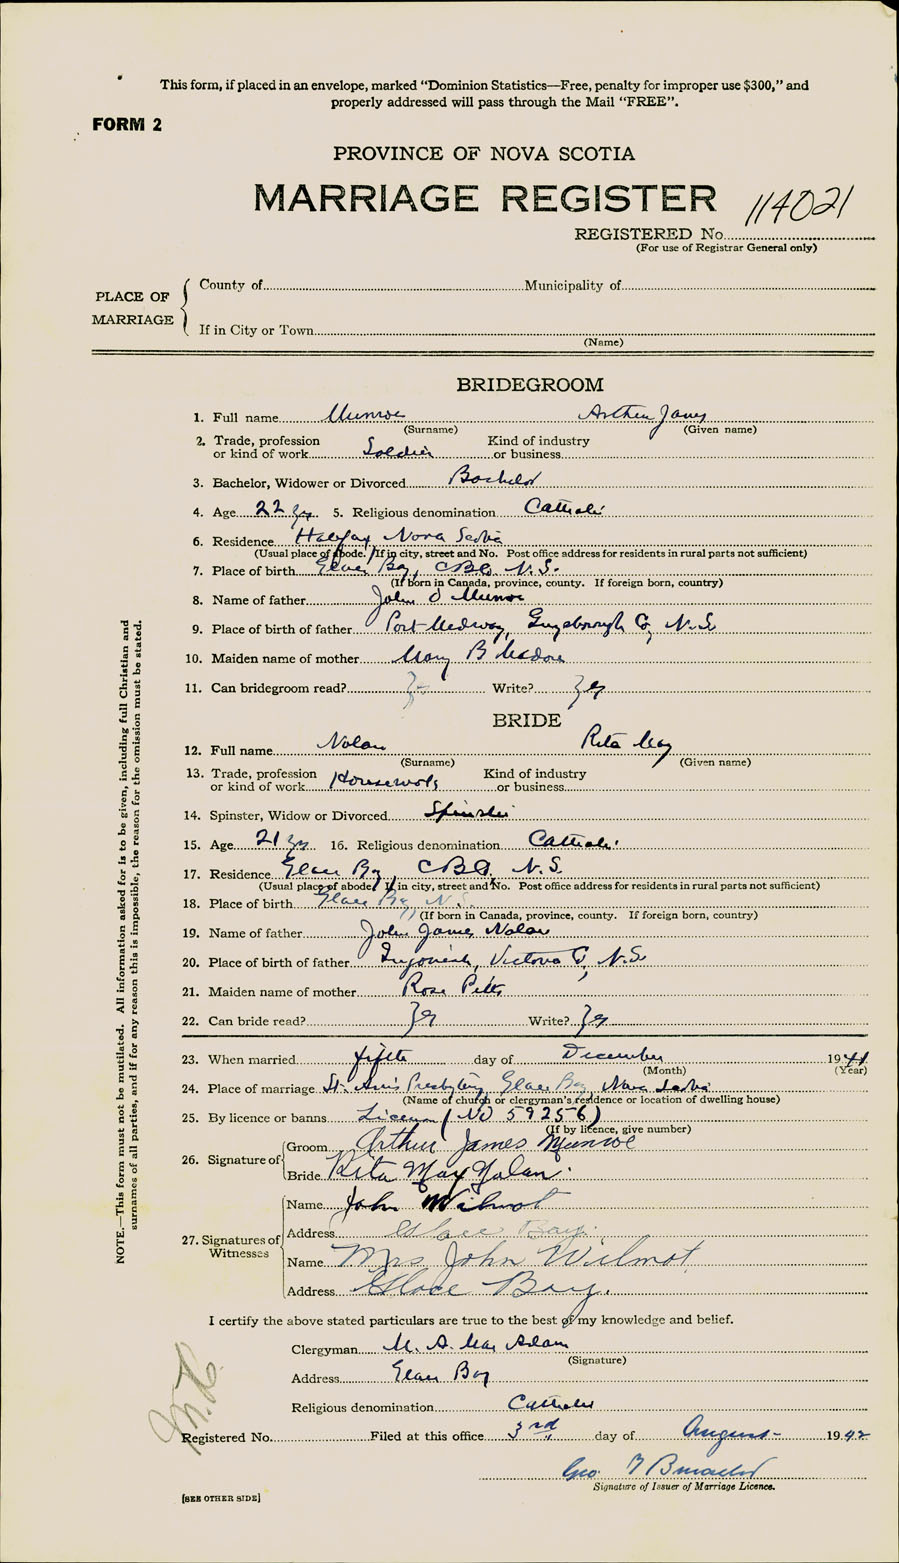 This form, if placed in an envelope, marked "Dominion Statistics—Free, penalty for improper use $300," and
properly addressed will pass through the Mail "FREE".
FORM 2
PROVINCE OF NOVA SCOTIA
MARRIAGE REGISTER
114021
REGISTERED No.
(For use of Registrar General only)
PLACE OF MARRIAGE
County of Municipality of
If in City or Town
(Name)
BRIDEGROOM
1. Full name Munroe Arthur James
(Surname) (Given name)
2. Trade, profession or kind of work Soldier Kind of industry or business
3. Bachelor, Widower or Divorced Bachelor
4. Age 22 yrs 5. Religious denomination Catholic
6. Residence Halifax Nova Scotia
(Usual place of abode. If in city, street and No. Post office address for residents in rural parts not sufficient)
7. Place of birth Glace Bay, CBCo. N.S.
(If born in Canada, province, county. If foreign born, country)
8. Name of father John J Munroe
9. Place of birth of father Port Medway, Guysborough Co, N.S.
10. Maiden name of mother Mary B
11. Can bridegroom read? Write? yes
BRIDE
12. Full name Nolan Rita May
(Surname) (Given name)
13. Trade, profession or kind of work Housework Kind of industry or business
14. Spinster, Widow or Divorced Spinster
15. Age 21 yrs 16. Religious denomination Catholic
17. Residence Glace Bay CBCo, N.S.
(Usual place of abode. If in city, street and No. Post office address for residents in rural parts not sufficient)
18. Place of birth Glace Bay N.S.
(If born in Canada, province, county. If foreign born, country)
19. Name of father John James Nolan
20. Place of birth of father Ingonish, Victoria Co, N.S.
21. Maiden name of mother Rose Pitts
22. Can bride read? yes Write? yes
23. When married fifth day of December 1941
(Month) (Year)
24. Place of marriage St. Ann's Presbytery, Glace Bay, Nova Scotia
(Name of church or clergyman's residence or location of dwelling house)
25. By licence or banns License (No 59256)
(If by licence, give number)
26. Signature of
Groom Arthur James Munroe
Bride Rita May Nolan.
27. Signatures of Witnesses
Name John Wilmot
Address Glace Bay.
Name Mrs John Wilmot
Address Glace Bay.
I certify the above stated particulars are true to the best of my knowledge and belief.
Clergyman M. A. MacAdam
(Signature)
Address Glace Bay
Religious denomination Catholic
Registered No. Filed at this office 3rd day of August 1942
Geo
Signature of Issuer of Marriage Licence.
[SEE OTHER SIDE]
NOTE.—This form must not be mutilated. All information asked for is to be given, including full Christian and
surnames of all parties, and if for any reason this is impossible, the reason for the omission must be stated.